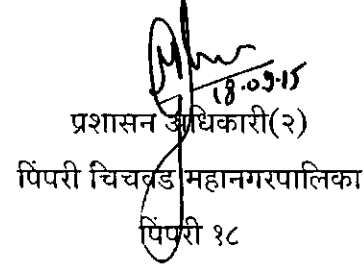 18.09.15
प्रशासन अधिकारी(२)
पिंपरी चिचवड महानगरपालिका
पिंपरी १८